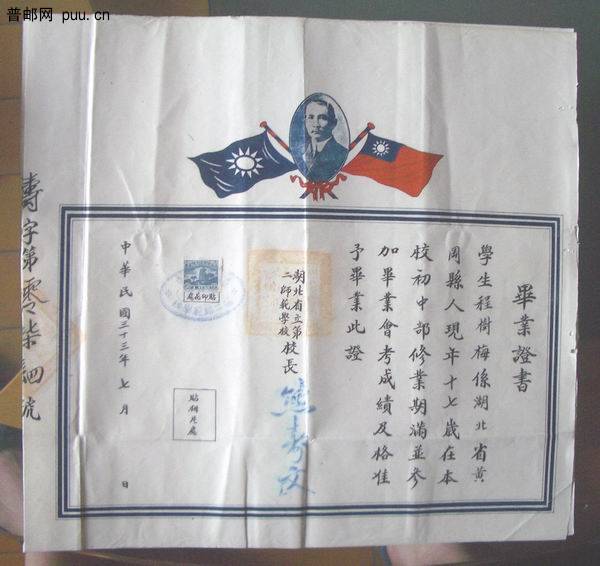 普邮网 puu.cn
畢業證書
學生程樹梅係湖北省黃
岡縣人現年十七歲在本
校初中部修業期滿並參
加畢業會考成績及格准
予畢業此證
湖北省立第
二師範學校
校長
貼印花處
貼相片處
中華民國三十三年七月 日
字第零柒
號